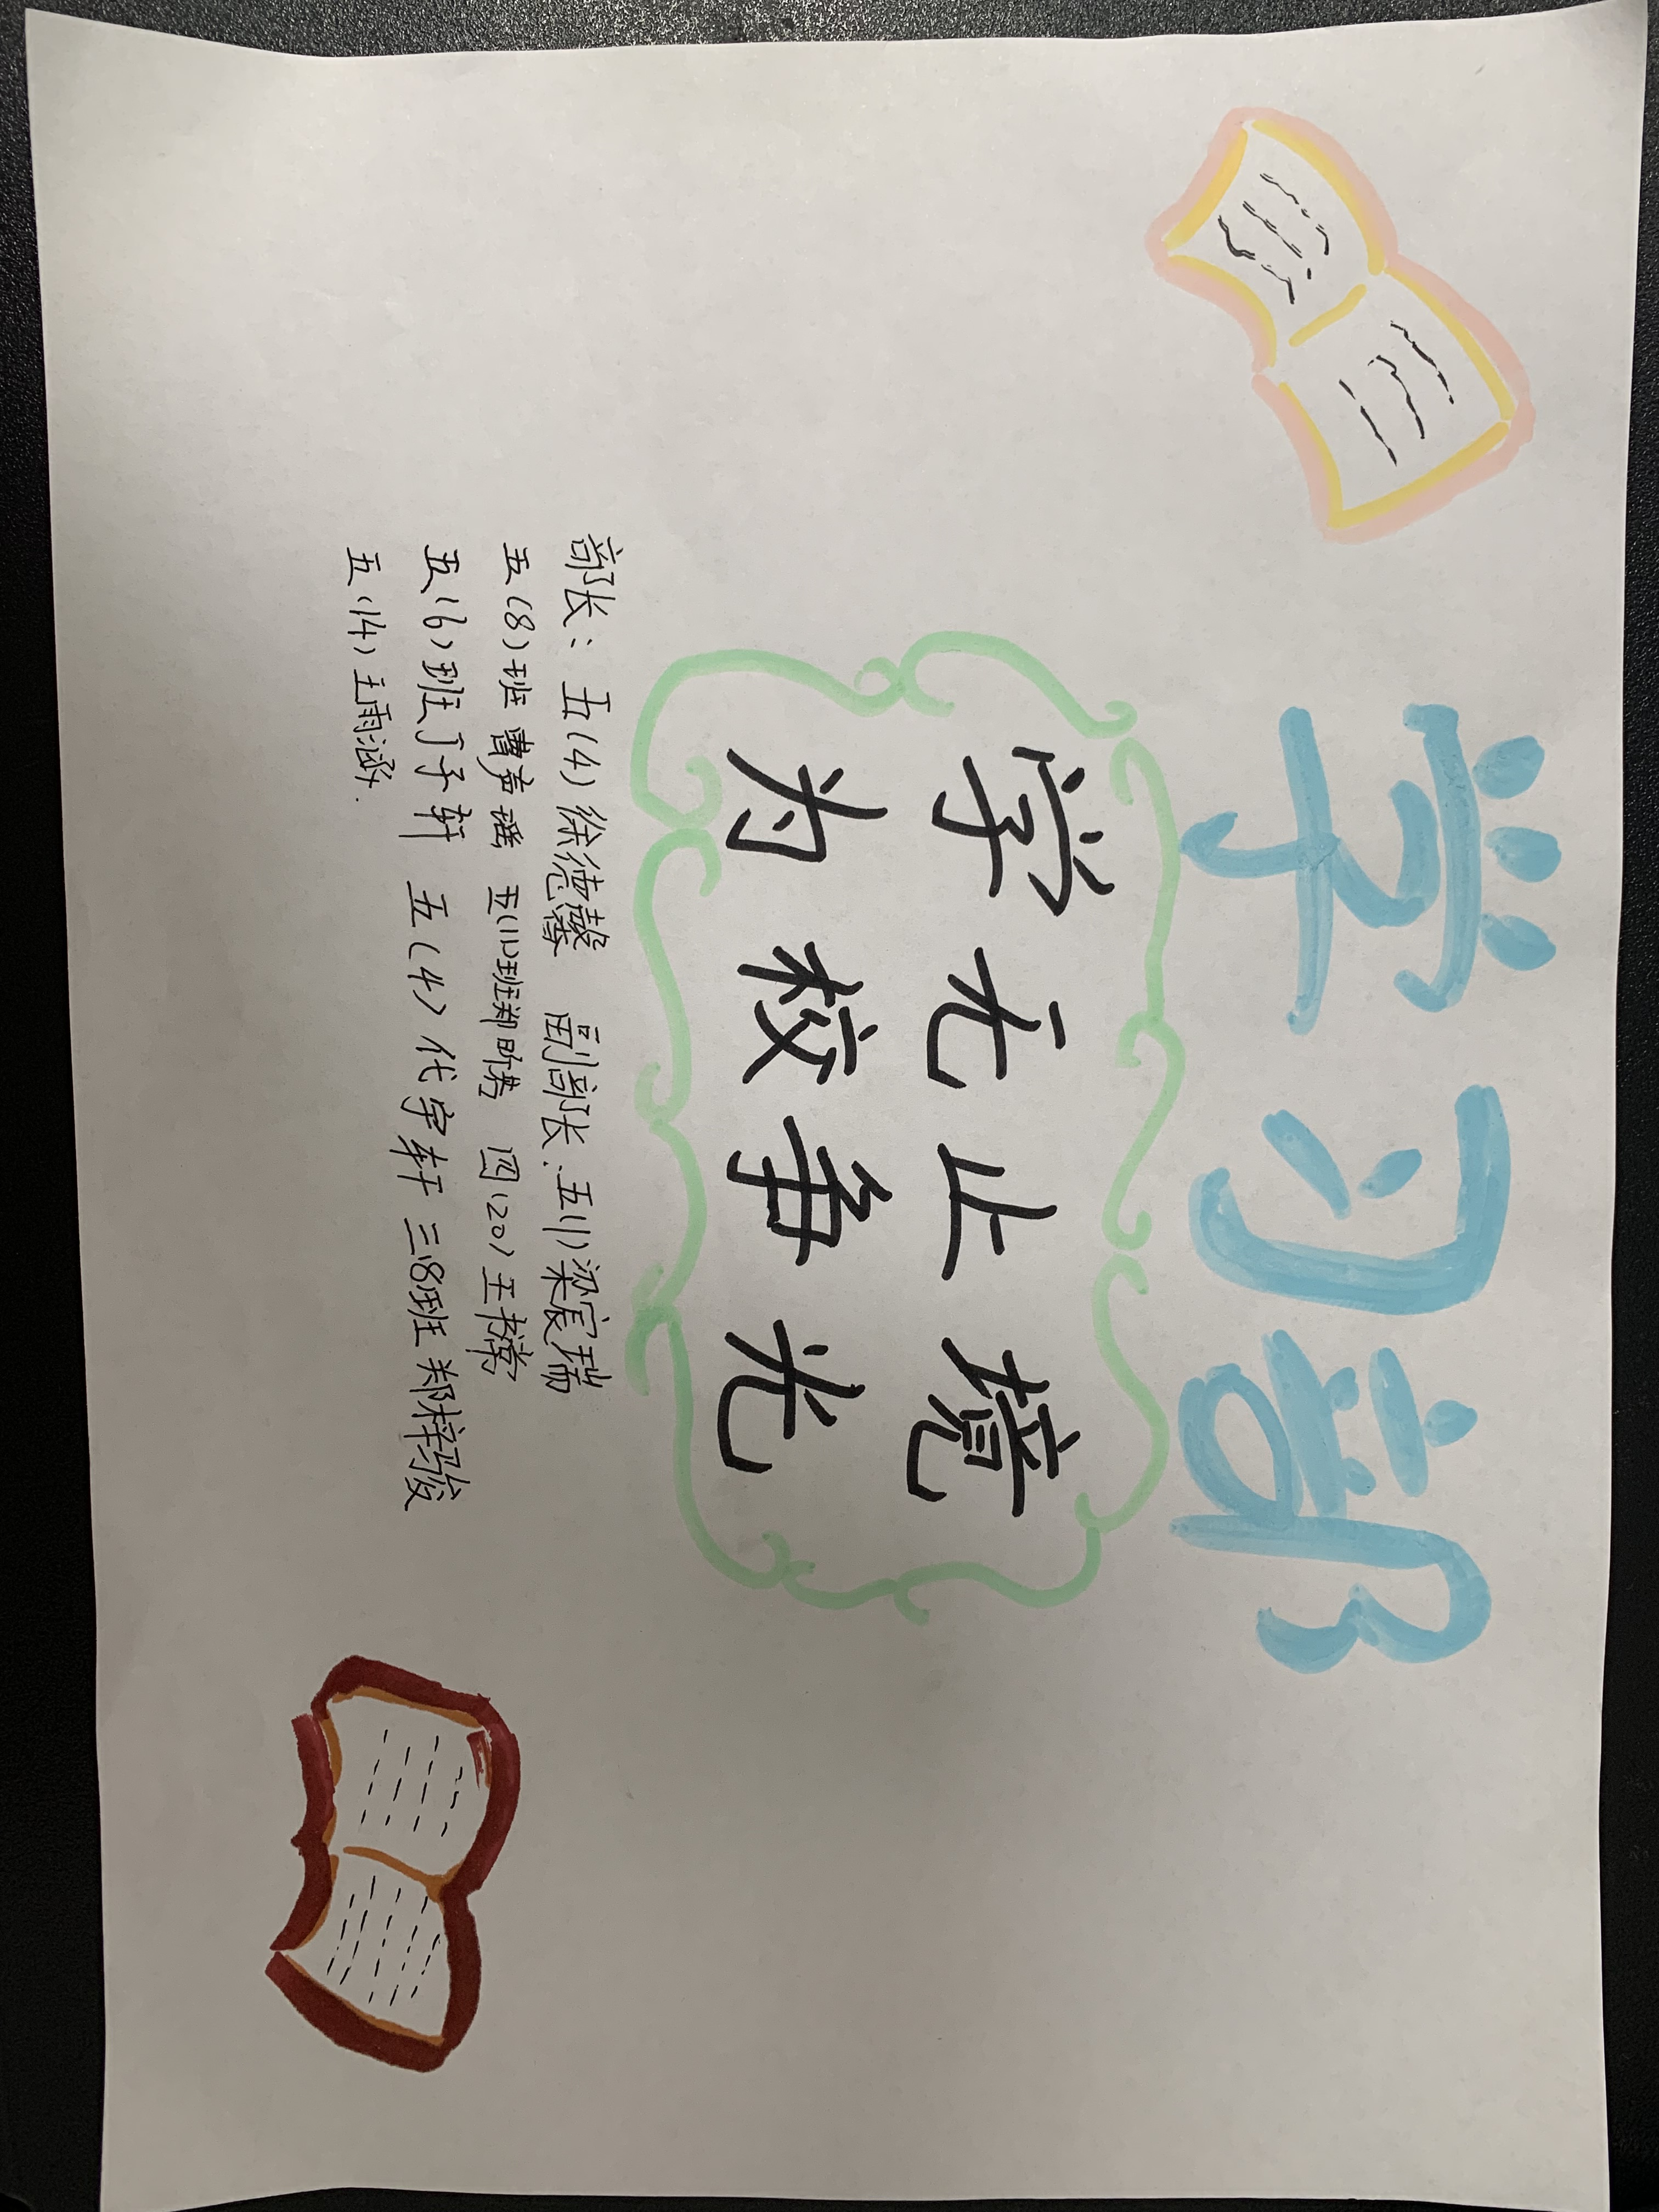 学习部
学无止境
为校争光
部长：五(4)徐德馨 副部长：五(1)梁宸瑞
五(8)班曹声遥 五(1)班郑昕 四(20)王书
五(6)班丁子轩 五(4)代宇轩 三(8)班郑梓骏
五(14)王雨涵.